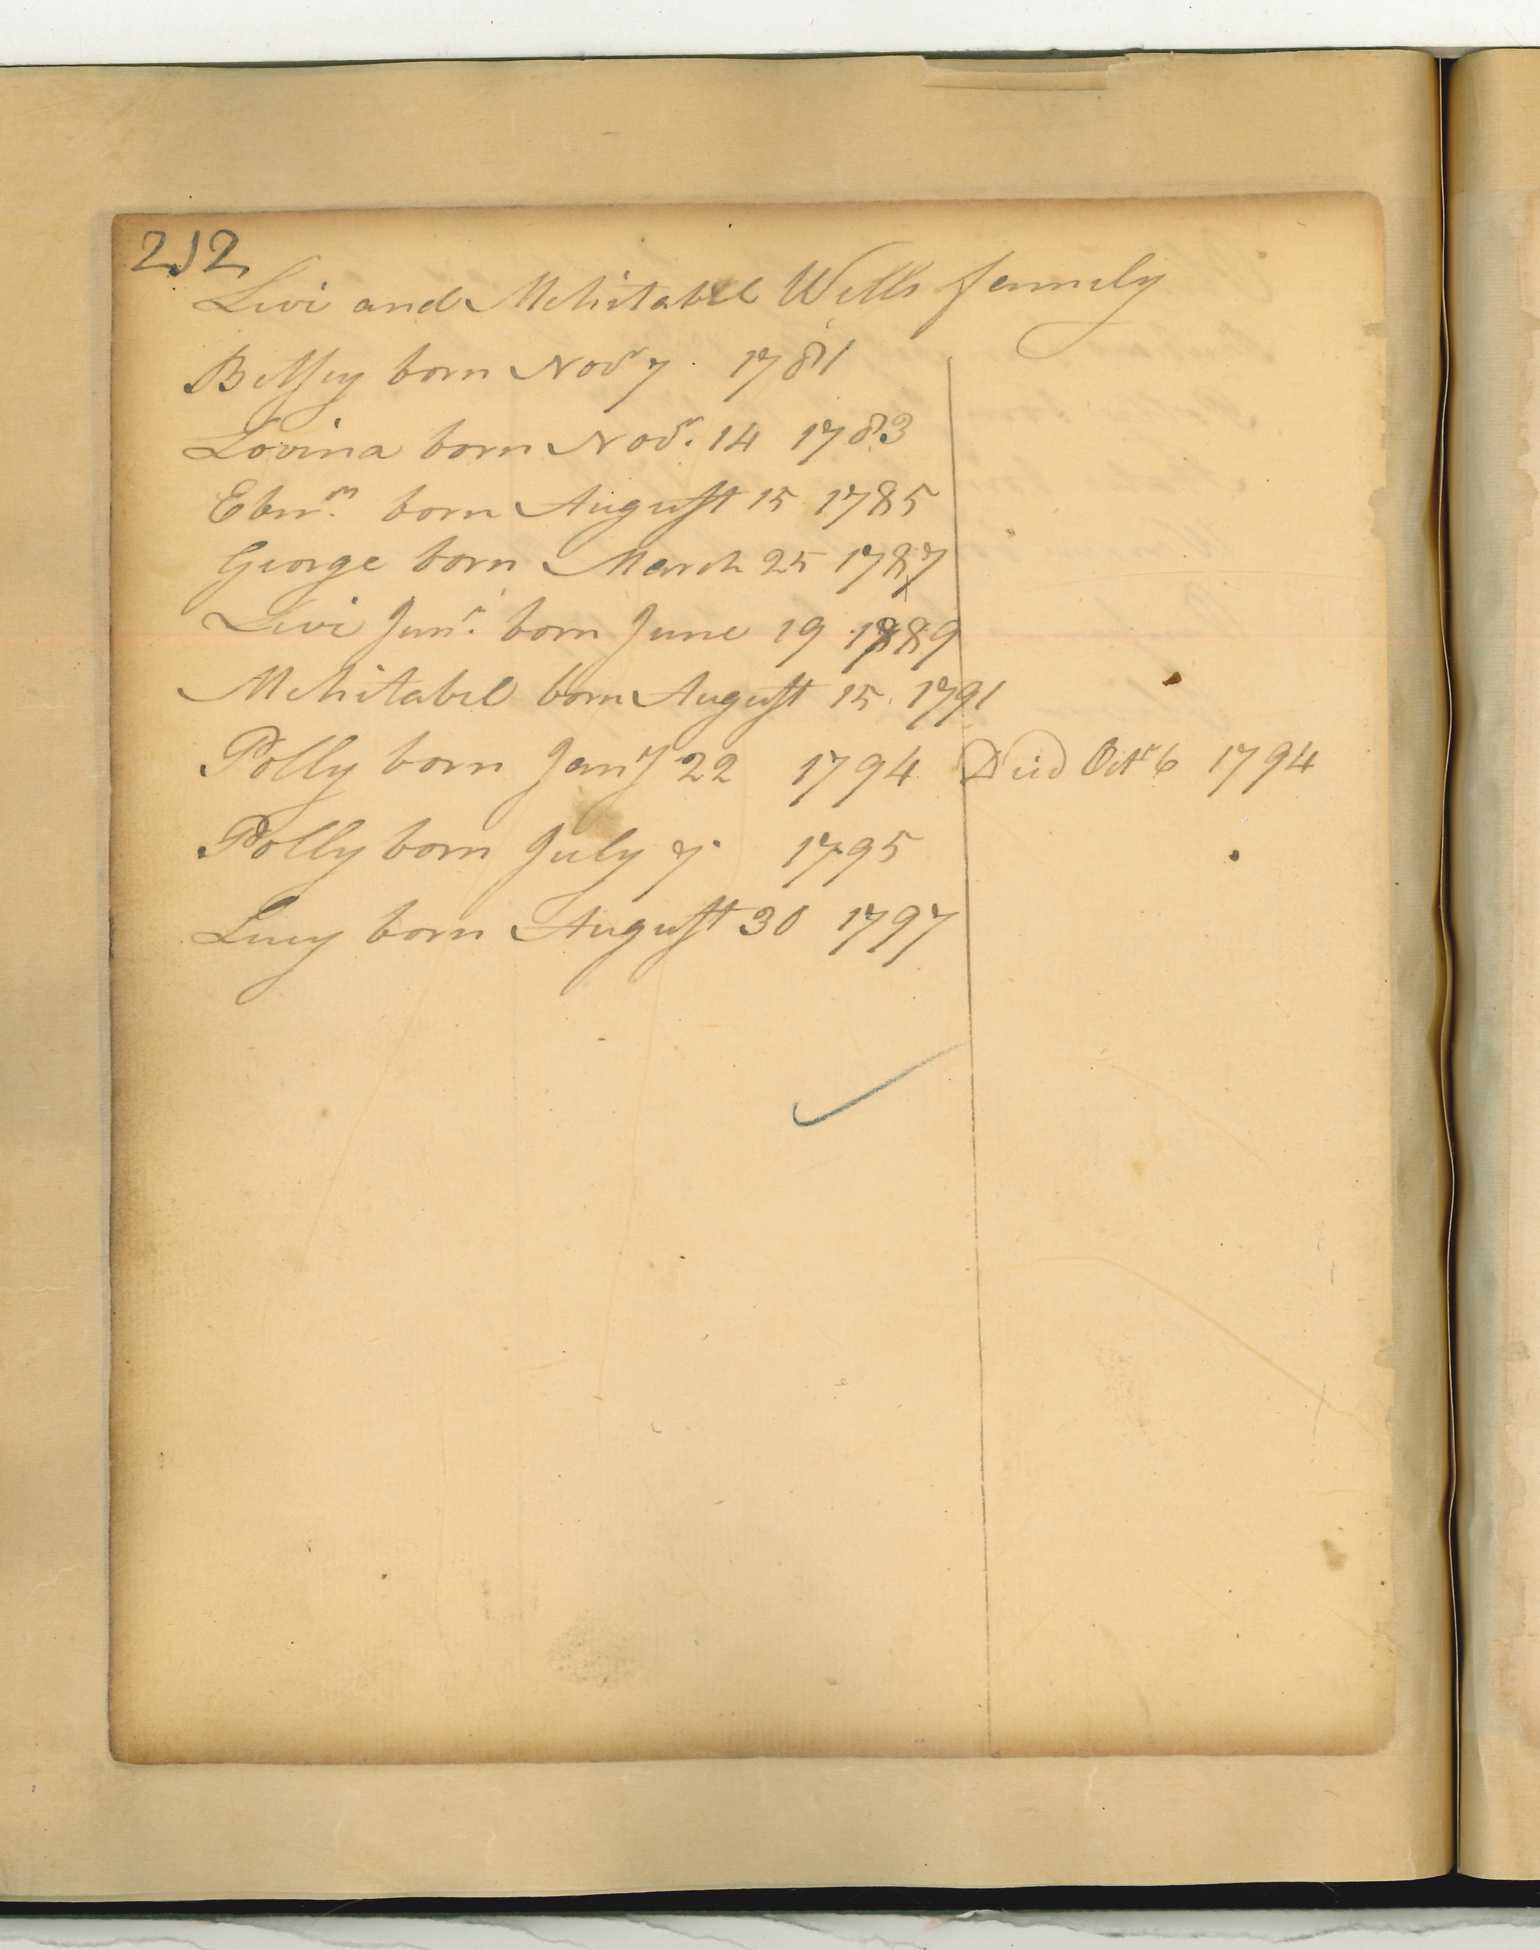 212
Levi and Mehitabel Wells family
Betsey born Novr 7 1781
Lovina born Novr. 14 1783
Ebnr. born August 15 1785
George born March 25 1787
Levi Junr. born June 19 1789
Mehitabel born August 15 1791
Polly born Jany 22 1794 Died Octr 6 1794
Polly born July 7 1795
Lucy born August 30 1797